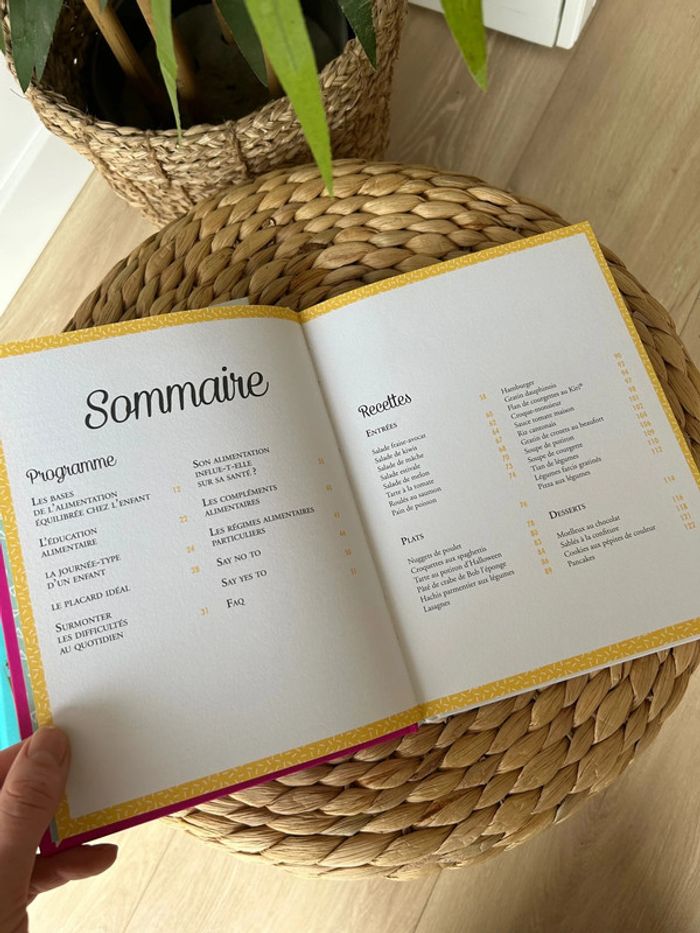 Sommaire
Programme
LES BASES
DE L'ALIMENTATION
ÉQUILIBRÉE CHEZ L'ENFANT 12
L'ÉDUCATION
ALIMENTAIRE 22
LA JOURNÉE-TYPE
D'UN ENFANT 24
LE PLACARD IDÉAL 28
SURMONTER
LES DIFFICULTÉS
AU QUOTIDIEN 31
SON ALIMENTATION
INFLUE-T-ELLE
SUR SA SANTÉ ?
LES COMPLÉMENTS
ALIMENTAIRES
LES RÉGIMES ALIMENTAIRES
PARTICULIERS
SAY NO TO
SAY YES TO
FAQ
Recettes
ENTRÉES 58
Salade fraise-avocat 60
Salade de kiwis 62
Salade de mâche 64
Salade estivale 67
Salade de melon 68
Tarte à la tomate 70
Roulés au saumon 73
Pain de poisson 74
PLATS 76
Nuggets de poulet 78
Croquettes aux spaghettis
Tarte au potiron d'Halloween 83
Pâté de crabe de Bob l'éponge 84
Hachis parmentier aux légumes
Lasagnes 89
Hamburger 90
Gratin dauphinois 93
Flan de courgettes au Kiri® 94
Croque-monsieur 97
Sauce tomate maison 98
Riz cantonais 101
Gratin de crouts au beaufort 102
Soupe de potiron 104
Soupe de courgette 106
Tian de légumes 109
Légumes farcis gratinés 110
Pizza aux légumes 112
DESSERTS 114
Moelleux au chocolat 116
Sablés à la confiture 118
Cookies aux pépites de couleur
Pancakes